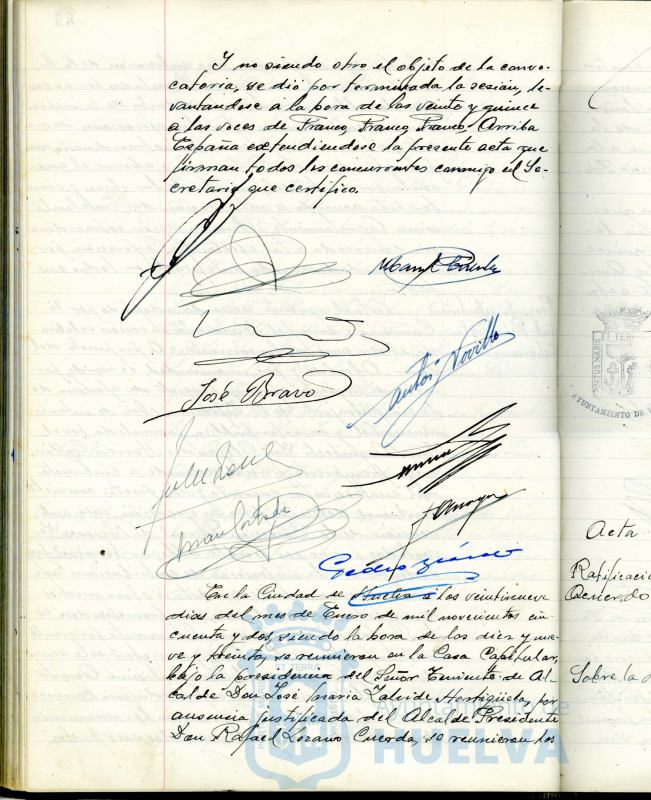 Y no siendo otro el objeto de la convo-
catoria, se dió por terminada la sesión, le-
vantandose a la hora de las veinte y quince
a las voces de Franco, Franco, Franco. Arriba
España extendiendose la presente acta que
firman todos los concurrentes conmigo el Se-
cretario que certifico.
José Bravo
Antº Novillo
J. Amaya
Pedro
En la Ciudad de Huelva a los veintinueve
dias del mes de Enero de mil novecientos cin-
cuenta y dos, siendo la hora de las diez y nue-
ve y treinta, se reunieron en la Casa Capitular,
bajo la presidencia del Señor Teniente de Al-
calde Don José Maria Hortigüela, por
ausencia justificada del Alcalde Presidente
Don Rafael Lozano Cuerda, se reunieron los
Acta
Ratificació
Acuerdo
Sobre la
PORTUS MARIS
ET TERR
AYUNTAMIENTO DE
Ayuntamiento de
HUELVA